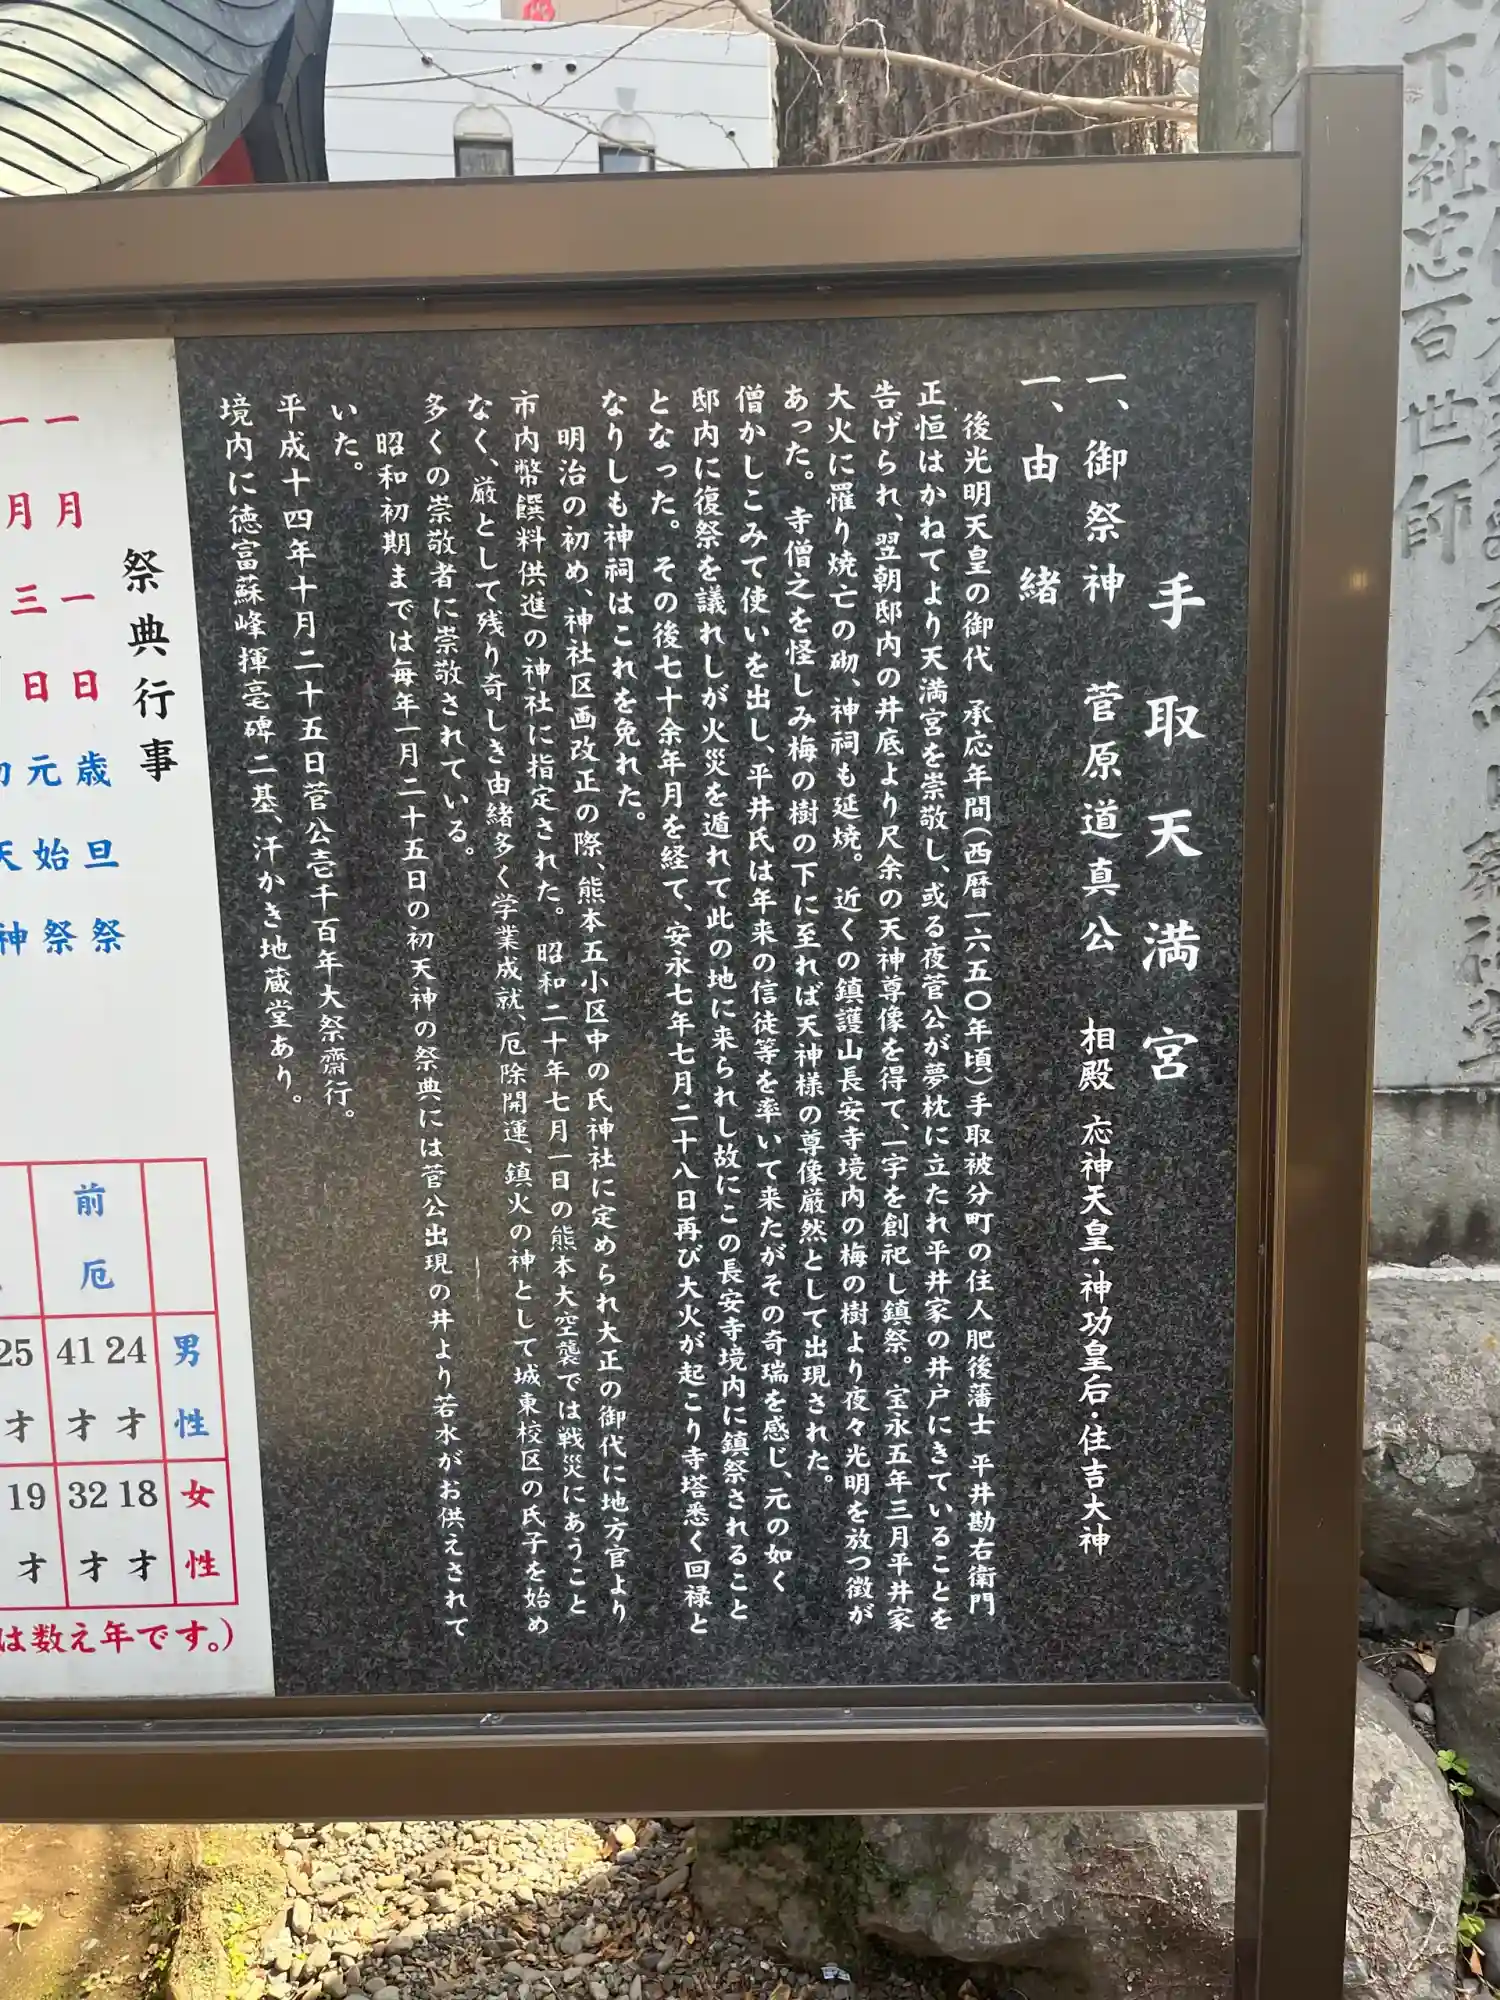 手取天満宮
一、御祭神　菅原道真公　相殿　応神天皇・神功皇后・住吉大神
一、由緒
後光明天皇の御代　承応年間(西暦一六五〇年頃)手取被分町の住人肥後藩士　平井勘右衛門
正恒はかねてより天満宮を崇敬し、或る夜菅公が夢枕に立たれ平井家の井戸にきていることを
告げられ、翌朝邸内の井底より尺余の天神尊像を得て、一宇を創祀し鎮祭。宝永五年三月平井家
大火に罹り焼亡の砌、神祠も延焼。近くの鎮護山長安寺境内の梅の樹より夜々光明を放つ徴が
あった。寺僧之を怪しみ梅の樹の下に至れば天神様の尊像厳然として出現された。
僧かしこみて使いを出し、平井氏は年来の信徒等を率いて来たがその奇瑞を感じ、元の如く
邸内に復祭を議れしが火災を遁れて此の地に来られし故にこの長安寺境内に鎮祭されること
となった。その後七十余年月を経て、安永七年七月二十八日再び大火が起こり寺塔悉く回禄と
なりしも神祠はこれを免れた。
明治の初め、神社区画改正の際、熊本五小区中の氏神社に定められ大正の御代に地方官より
市内幣饌料供進の神社に指定された。昭和二十年七月一日の熊本大空襲では戦災にあうこと
なく、厳として残り奇しき由緒多く学業成就、厄除開運、鎮火の神として城東校区の氏子を始め
多くの崇敬者に崇敬されている。
昭和初期までは毎年一月二十五日の初天神の祭典には菅公出現の井より若水がお供えされて
いた。
平成十四年十月二十五日菅公壱千百年大祭齋行。
境内に徳富蘇峰揮毫碑二基、汗かき地蔵堂あり。
祭典行事
一月一日　歳旦祭
一月三日　元始祭
初天神
前厄
男性
24才
41才
25才
女性
18才
32才
19才
は数え年です。)
天下社忠百世師